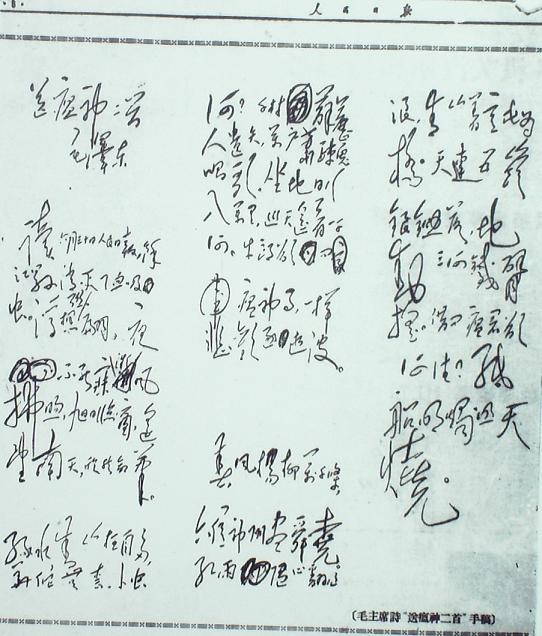 人民日報
送瘟神二首
毛澤东
读六月三十日人民日報，余
江县消灭了血吸
虫。浮想联翩，夜
不能寐。微风
拂煦，旭日临窗，遥
望南天，欣然命筆。
绿水青山枉自多，
華佗無奈小虫
何？千村薜荔
人遺矢，萬户萧疏鬼
唱歌。坐地日行
八萬里，巡天遥看一千
河。牛郎欲
瘟神事，一样
悲欢逐逝波。
春风楊柳萬千條，
六億神州盡舜堯。
红雨随心翻作
浪，青山著意化为
橋。天連五嶺
銀鋤落，地
動三河鐵臂
摇。借问瘟君欲
何往？纸
船明燭照天
燒。
〔毛主席詩“送瘟神二首”手稿〕